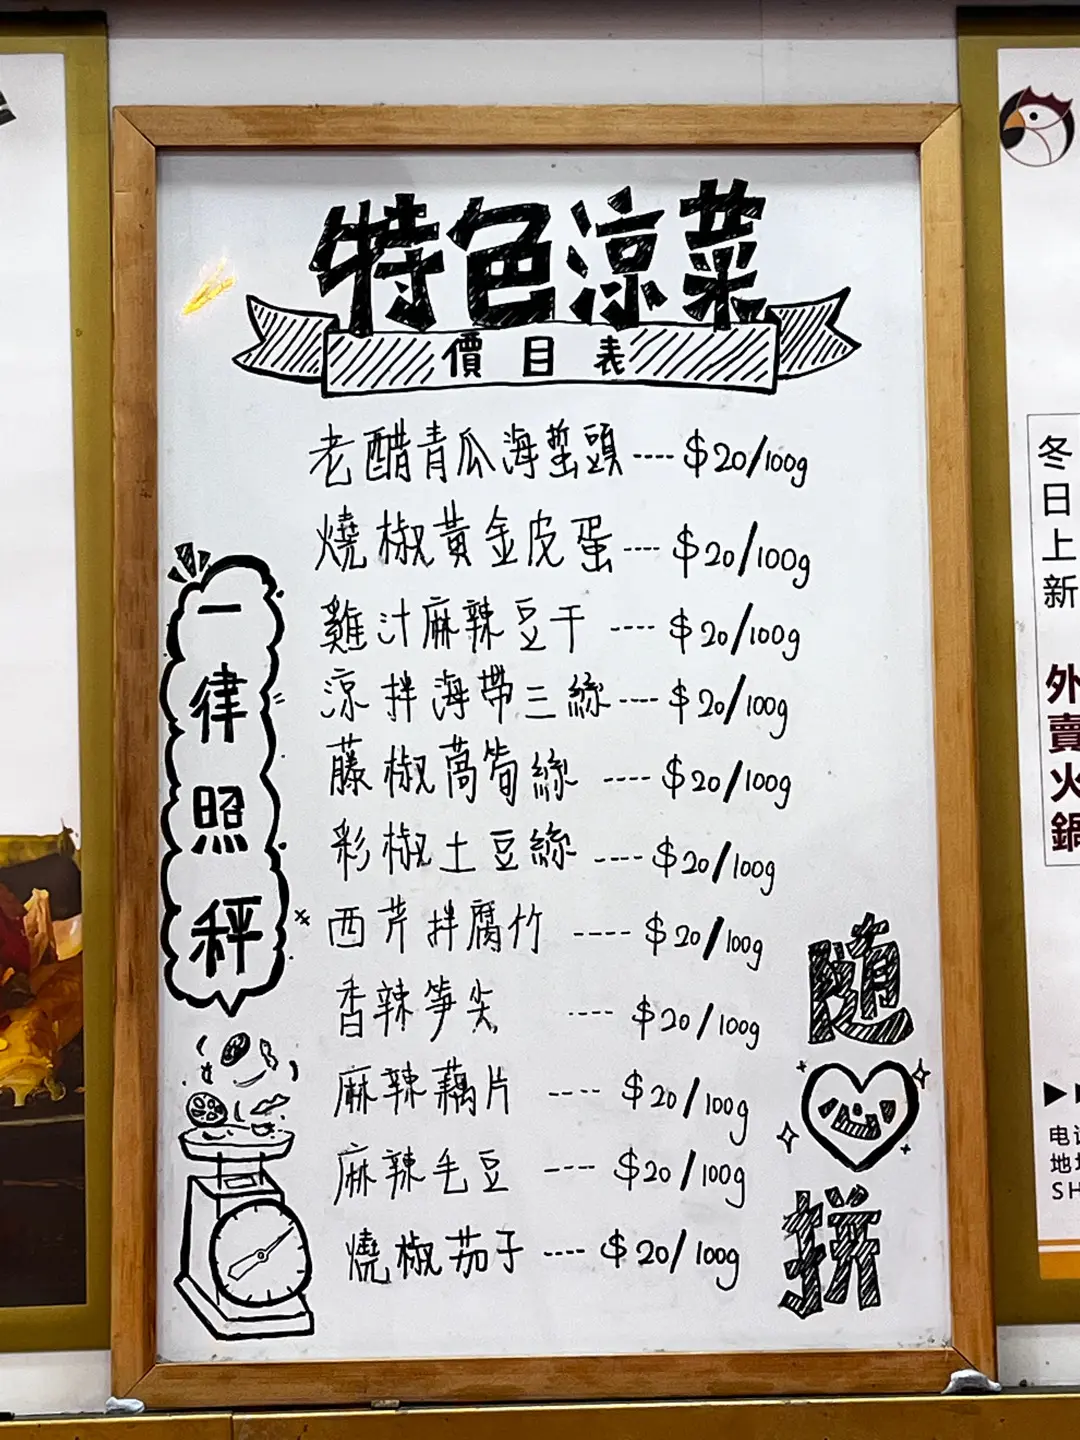 特色涼菜
價目表
老醋青瓜海蜇頭----$20/100g
燒椒黃金皮蛋----$20/100g
雞汁麻辣豆干----$20/100g
涼拌海帶三絲----$20/100g
藤椒萵筍絲----$20/100g
彩椒土豆絲----$20/100g
西芹拌腐竹----$20/100g
香辣筍尖----$20/100g
麻辣藕片----$20/100g
麻辣毛豆----$20/100g
燒椒茄子----$20/100g
一律照秤
随心拼
冬日上新
外賣火鍋
电
地
SH